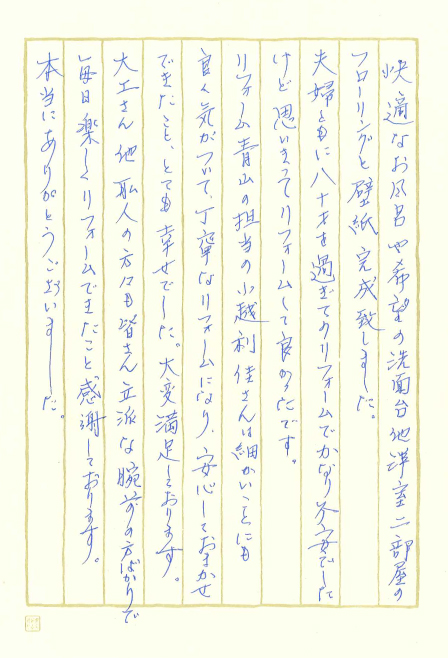 快適なお風呂や希望の洗面台他洋室二部屋の
フローリングと壁紙完成致しました。
夫婦ともに八十才を過ぎてのリフォームでかなり不安でした
けど思いきってリフォームして良かったです。
リフォーム青山の担当の小越利佳さんは細かいことにも
良く気がついて、丁寧なリフォームになり、安心しておまかせ
できたこと、とても幸せでした。大変満足しております。
大工さん他職人の方々も皆さん立派な腕前の方ばかりで
毎日楽しくリフォームできたこと感謝しております。
本当にありがとうございました。